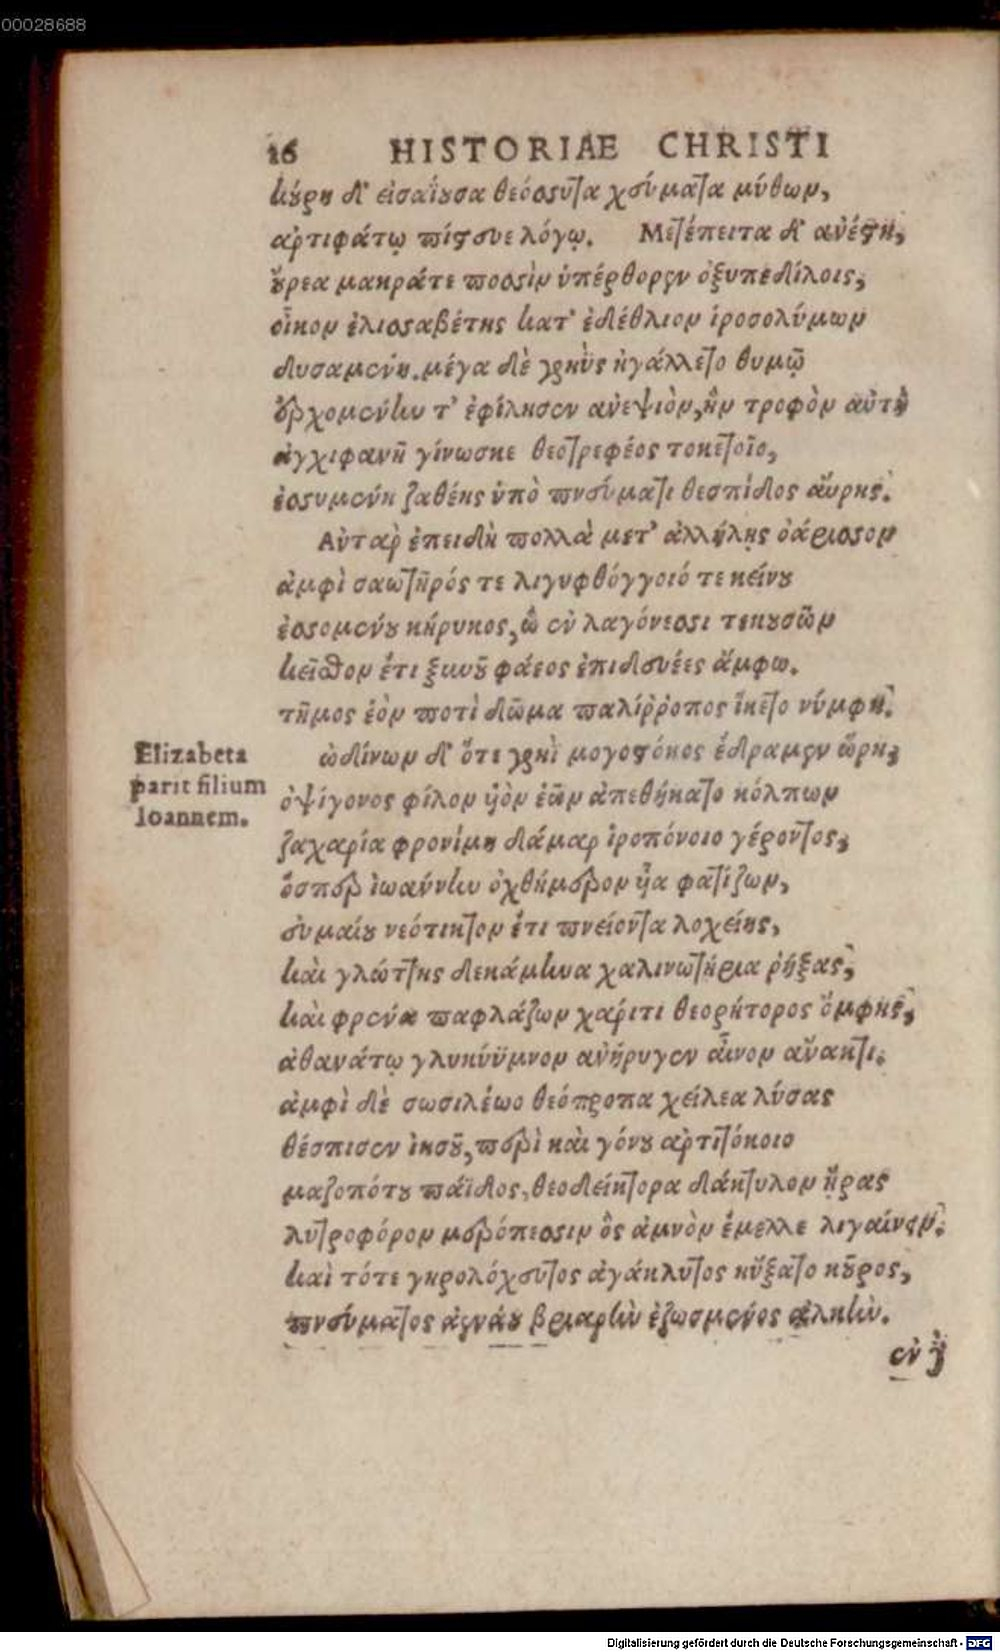 00028688
16 HISTORIAE CHRISTI
κούρη δ' εἰσαΐουσα θεόσσυτα χεύματα μύθων,
ἀρτιφάτῳ πίστευε λόγῳ. Μετέπειτα δ' ἀνέστη,
οὔρεα μακρά τε ποσσὶν ὑπέρθορεν ὀξυπεδίλοις,
οἶκον ἐλισσαβέτης κατ' ἐδέθλιον ἱροσολύμων
δυσαμένη. μέγα δὲ γρηῢς ἠγάλλετο θυμῷ
ἐρχομένην τ' ἐφίλησεν ἀνεψιὸν, ἣν τροφὸν αὐτὴ
ἀγχιφανῆ γίνωσκε θεοτρεφέος τοκετοῖο,
ἐσσυμένη ζαθέης ὑπὸ πνεύματι θεσπίδος αὔρης.
Αὐτὰρ ἐπειδὴ πολλὰ μετ' ἀλλήλης ὀάρισσον
ἀμφὶ σαωτῆρός τε λιγυφθόγγοιό τε κείνου
ἐσσομένου κήρυκος, ὢ ἐν λαγόνεσσι τεκουσῶν
κεῖσθον ἔτι ξυνοῦ φάεος ἐπιδευέες ἄμφω.
τῆμος ἑὸν ποτὶ δῶμα παλίρροπος ἵκετο νύμφη.
Elizabeta
parit filium
Ioannem.
ὠδίνων δ' ὅτε γρηῒ μογοστόκος ἔδραμεν ὥρη,
ὀψίγονος φίλον υἱὸν ἑῶν ἀπεθήκατο κόλπων
ζαχαρία φρονίμη δάμαρ ἱροπόνοιο γέροντος,
ὅσπερ ἰωάννην ὀχθήμερον υἷα φατίζων,
εὐμαίου νεότικτον ἔτι πνείοντα λοχείης,
καὶ γλώττης δεκάμηνα χαλινωτήρια ῥήξας,
καὶ φρένα παφλάζων χάριτι θεορήτορος ὄμφης,
ἀθανάτῳ γλυκύϋμνον ἀνήρυγεν αἶνον ἄνακτι.
ἀμφὶ δὲ σωσιλέωο θεόπροπα χείλεα λύσας
θέσπισεν ἰησοῦ, περὶ καὶ γόνου ἀρτιτόκοιο
μαζοπότου πάϊδος, θεοδείκτορα δάκτυλον ἤρας
λυτροφόρον μερόπεσσιν ὃς ἀμνὸν ἔμελλε λιγαίνειν.
καὶ τότε γηρολόχευτος ἀγάκλυτος ηὔξατο κοῦρος,
πνεύματος ἀενάου βριαρὴν ἐζωσμένος ἀλκήν.
ἐν δ
Digitalisierung gefördert durch die Deutsche Forschungsgemeinschaft - DFG